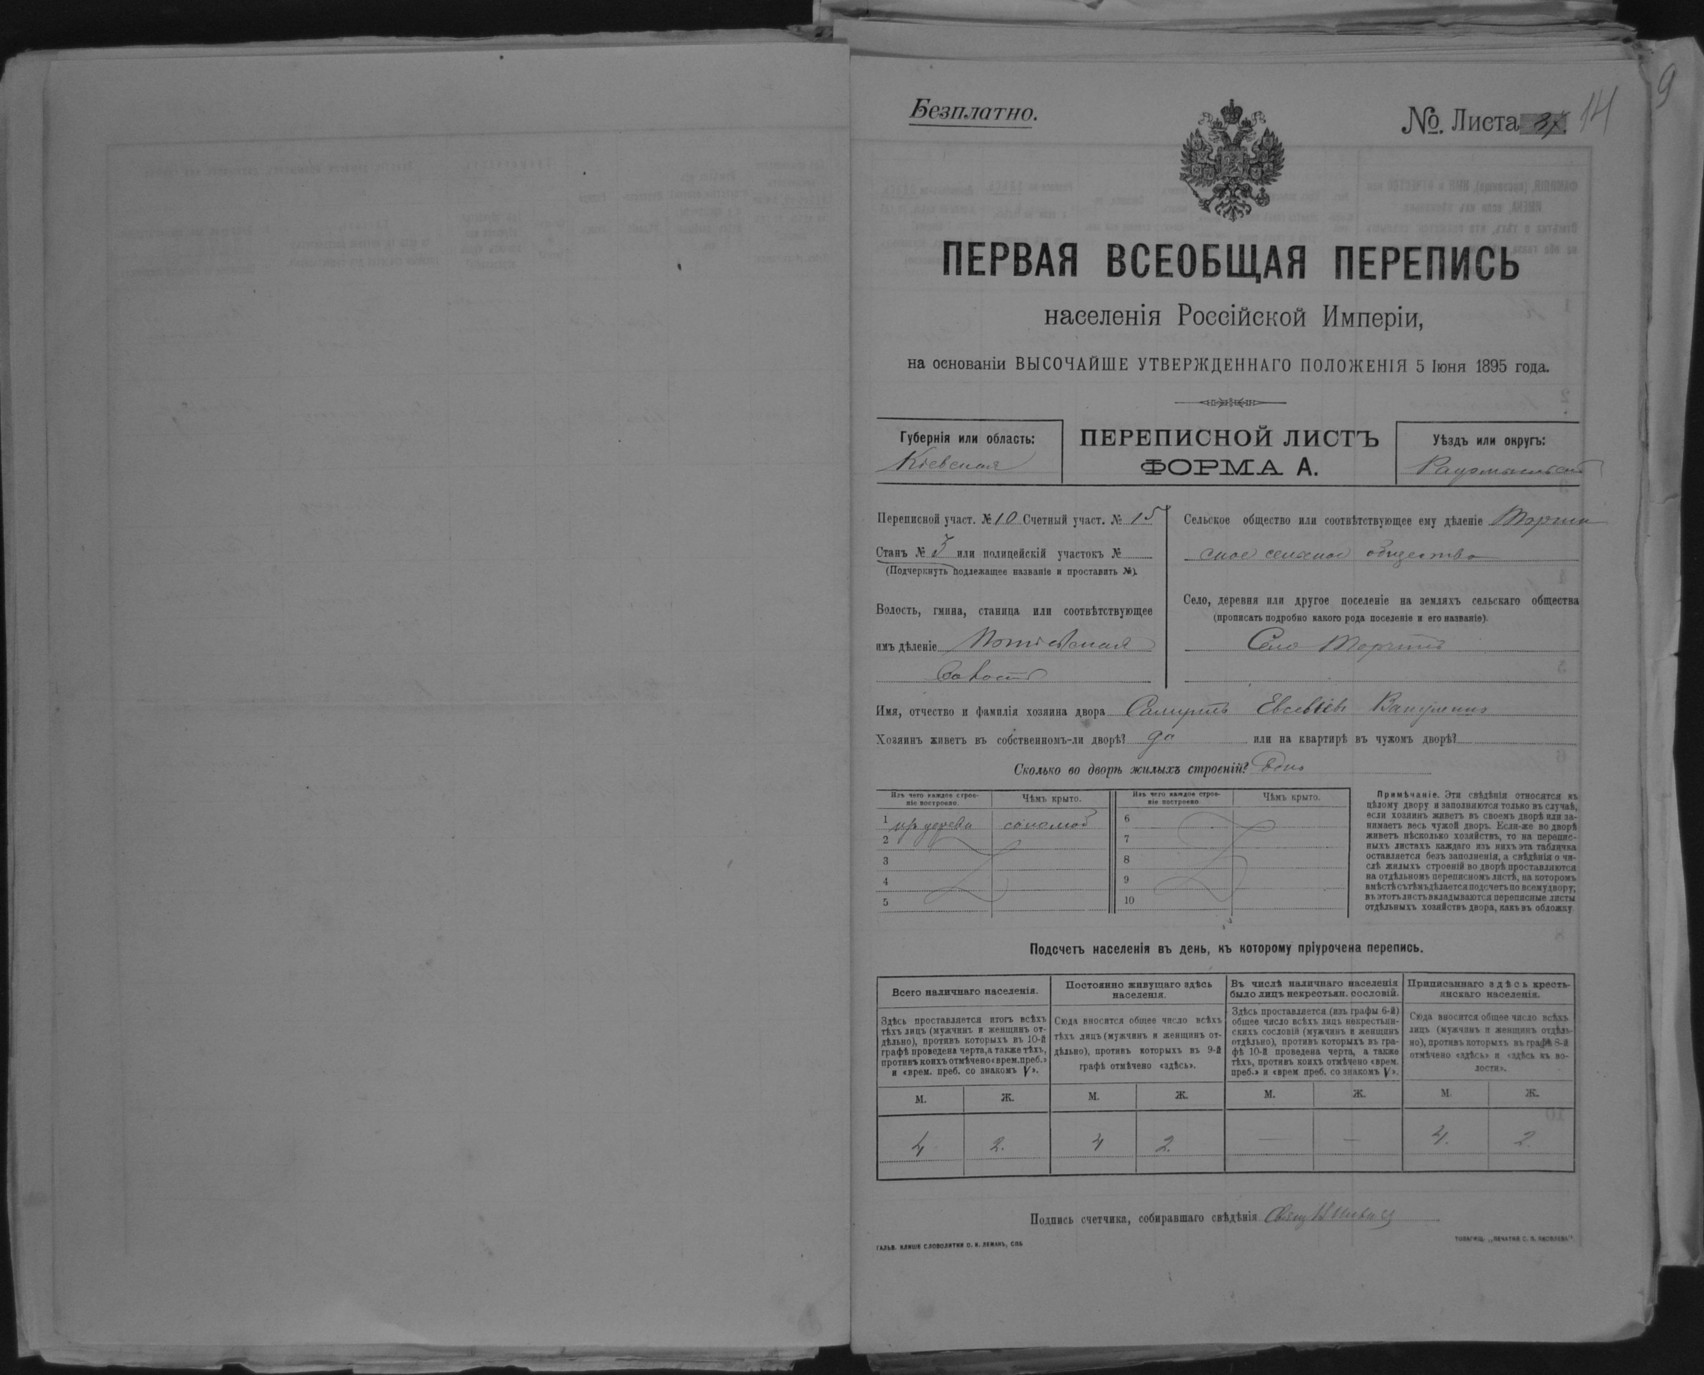 Безплатно.
№. Листа 14
9
ПЕРВАЯ ВСЕОБЩАЯ ПЕРЕПИСЬ
населенія Россійской Имперіи,
на основаніи ВЫСОЧАЙШЕ УТВЕРЖДЕННАГО ПОЛОЖЕНІЯ 5 Іюня 1895 года.
Губернія или область:
Кіевская
ПЕРЕПИСНОЙ ЛИСТЪ
ФОРМА А.
Уѣздъ или округъ:
Переписной участ. № 10 Счетный участ. № 15
Станъ № 3 или полицейскій участокъ №
(Подчеркнуть подлежащее названіе и проставить №).
Волость, гмина, станица или соотвѣтствующее
имъ дѣленіе Потіевская
Волость
Сельское общество или соотвѣтствующее ему дѣленіе
ское сельское общество
Село, деревня или другое поселеніе на земляхъ сельскаго общества
(прописать подробно какого рода поселеніе и его названіе).
Село
Имя, отчество и фамилія хозяина двора Евсевіевъ
Хозяинъ живетъ въ собственномъ-ли дворѣ? да или на квартирѣ въ чужомъ дворѣ?
Сколько во дворѣ жилыхъ строеній?
Изъ чего каждое строе-
ніе построено.
Чѣмъ крыто.
Изъ чего каждое строе-
ніе построено.
Чѣмъ крыто.
1 изъ дерева соломой
2
3
4
5
6
7
8
9
10
Примѣчаніе. Эти свѣдѣнія относятся къ
цѣлому двору и заполняются только въ случаѣ,
если хозяинъ живетъ въ своемъ дворѣ или за-
нимаетъ весь чужой дворъ. Если-же во дворѣ
живетъ нѣсколько хозяйствъ, то на перепис-
ныхъ листахъ каждаго изъ нихъ эта табличка
оставляется безъ заполненія, а свѣдѣнія о чи-
слѣ жилыхъ строеній во дворѣ проставляются
на отдѣльномъ переписномъ листѣ, на которомъ
вмѣстѣ съ тѣмъ дѣлается подсчетъ по всему двору;
въ этотъ листъ вкладываются переписные листы
отдѣльныхъ хозяйствъ двора, какъ въ обложку.
Подсчетъ населенія въ день, къ которому пріурочена перепись.
Всего наличнаго населенія.
Здѣсь проставляется итогъ всѣхъ
тѣхъ лицъ (мужчинъ и женщинъ от-
дѣльно), противъ которыхъ въ 10-й
графѣ проведена черта, а также тѣхъ,
противъ коихъ отмѣчено «врем. преб.»
и «врем. преб. со знакомъ V».
М. Ж.
4 2.
Постоянно живущаго здѣсь
населенія.
Сюда вносится общее число всѣхъ
тѣхъ лицъ (мужчинъ и женщинъ от-
дѣльно), противъ которыхъ въ 9-й
графѣ отмѣчено «здѣсь».
М. Ж.
4 2
Въ числѣ наличнаго населенія
было лицъ некрестьян. сословій.
Здѣсь проставляется (изъ графы 6-й)
общее число всѣхъ лицъ некрестьян-
скихъ сословій (мужчинъ и женщинъ
отдѣльно), противъ которыхъ въ гра-
фѣ 10-й проведена черта, а также
тѣхъ, противъ коихъ отмѣчено «врем.
преб.» и «врем преб. со знакомъ V».
М. Ж.
— —
Приписаннаго здѣсь кресть-
янскаго населенія.
Сюда вносится общее число всѣхъ
лицъ (мужчинъ и женщинъ отдѣль-
но), противъ которыхъ въ графѣ 8-й
отмѣчено «здѣсь» и «здѣсь въ во-
лости».
М. Ж.
4. 2
Подпись счетчика, собиравшаго свѣдѣнія
ГАЛЬВ. КЛИШЕ СЛОВОЛИТНИ О. И. ЛЕМАНЪ, СПБ
ТОВАРИЩ. „ПЕЧАТНЯ С. П. ЯКОВЛЕВА"